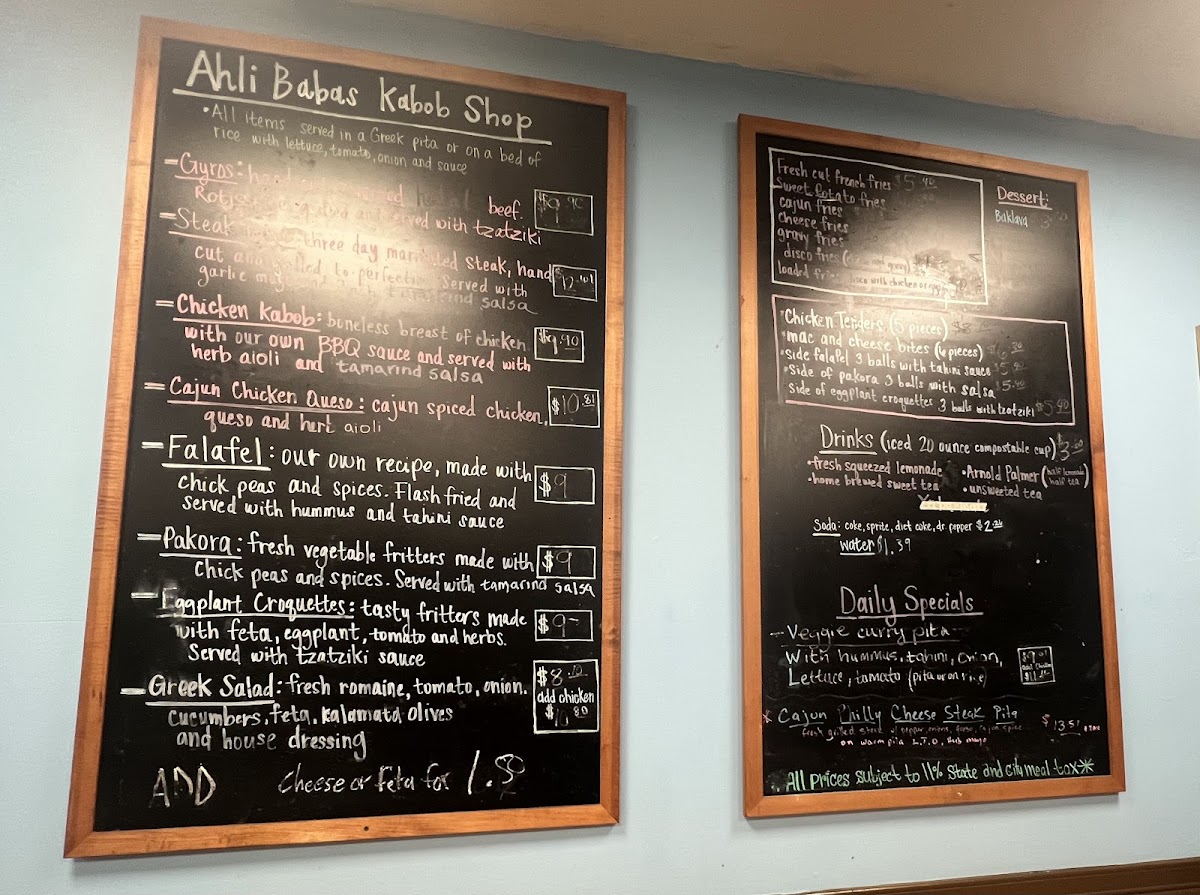 Ahli Babas Kabob Shop
•All items served in a Greek pita or on a bed of
rice with lettuce, tomato, onion and sauce
-Gyros: beef.
and served with tzatziki
$9.90
-Steak three day marinated steak, hand
cut and grilled, to perfection. Served with
garlic tamarind salsa
$12.
-Chicken Kabob: boneless breast of chicken
with our own BBQ sauce and served with
herb aioli and tamarind salsa
$9.90
-Cajun Chicken Queso: cajun spiced chicken,
queso and hurt aioli
$10.81
-Falafel: our own recipe, made with
chick peas and spices. Flash fried and
served with hummus and tahini sauce
$9
-Pakora: fresh vegetable fritters made with
chick peas and spices. Served with tamarind salsa
$9
-Eggplant Croquettes: tasty fritters made
with feta, eggplant, tomato and herbs.
Served with tzatziki sauce
$9-
-Greek Salad: fresh romaine, tomato, onion.
cucumbers, feta, kalamata olives
and house dressing
$8.
add chicken
$10.80
ADD cheese or feta for 1.50
Fresh cut french fries $5.40
Sweet Potato fries
cajun fries
cheese fries
gravy fries
disco fries
loaded
Dessert:
Baklava
•Chicken Tenders (5 pieces)
•mac and cheese bites (6 pieces)
•side falafel 3 balls with tahini sauce
•Side of pakora 3 balls with salsa $5.40
Side of eggplant croquettes 3 balls with tzatziki $5.40
Drinks (iced 20 ounce compostable cup)
•fresh squeezed lemonade
•home brewed sweet tea
•Arnold Palmer (half lemonade half tea)
•unsweeted tea
Soda: coke, sprite, diet coke, dr pepper $2.
water $1.39
Daily Specials
-Veggie curry pita-
With hummus, tahini, onion,
Lettuce, tomato (pita or on rice)
Cajun Philly Cheese Steak Pita
$13.51
on warm pita L.T.O,
All prices subject to 11% State and city meal tax*